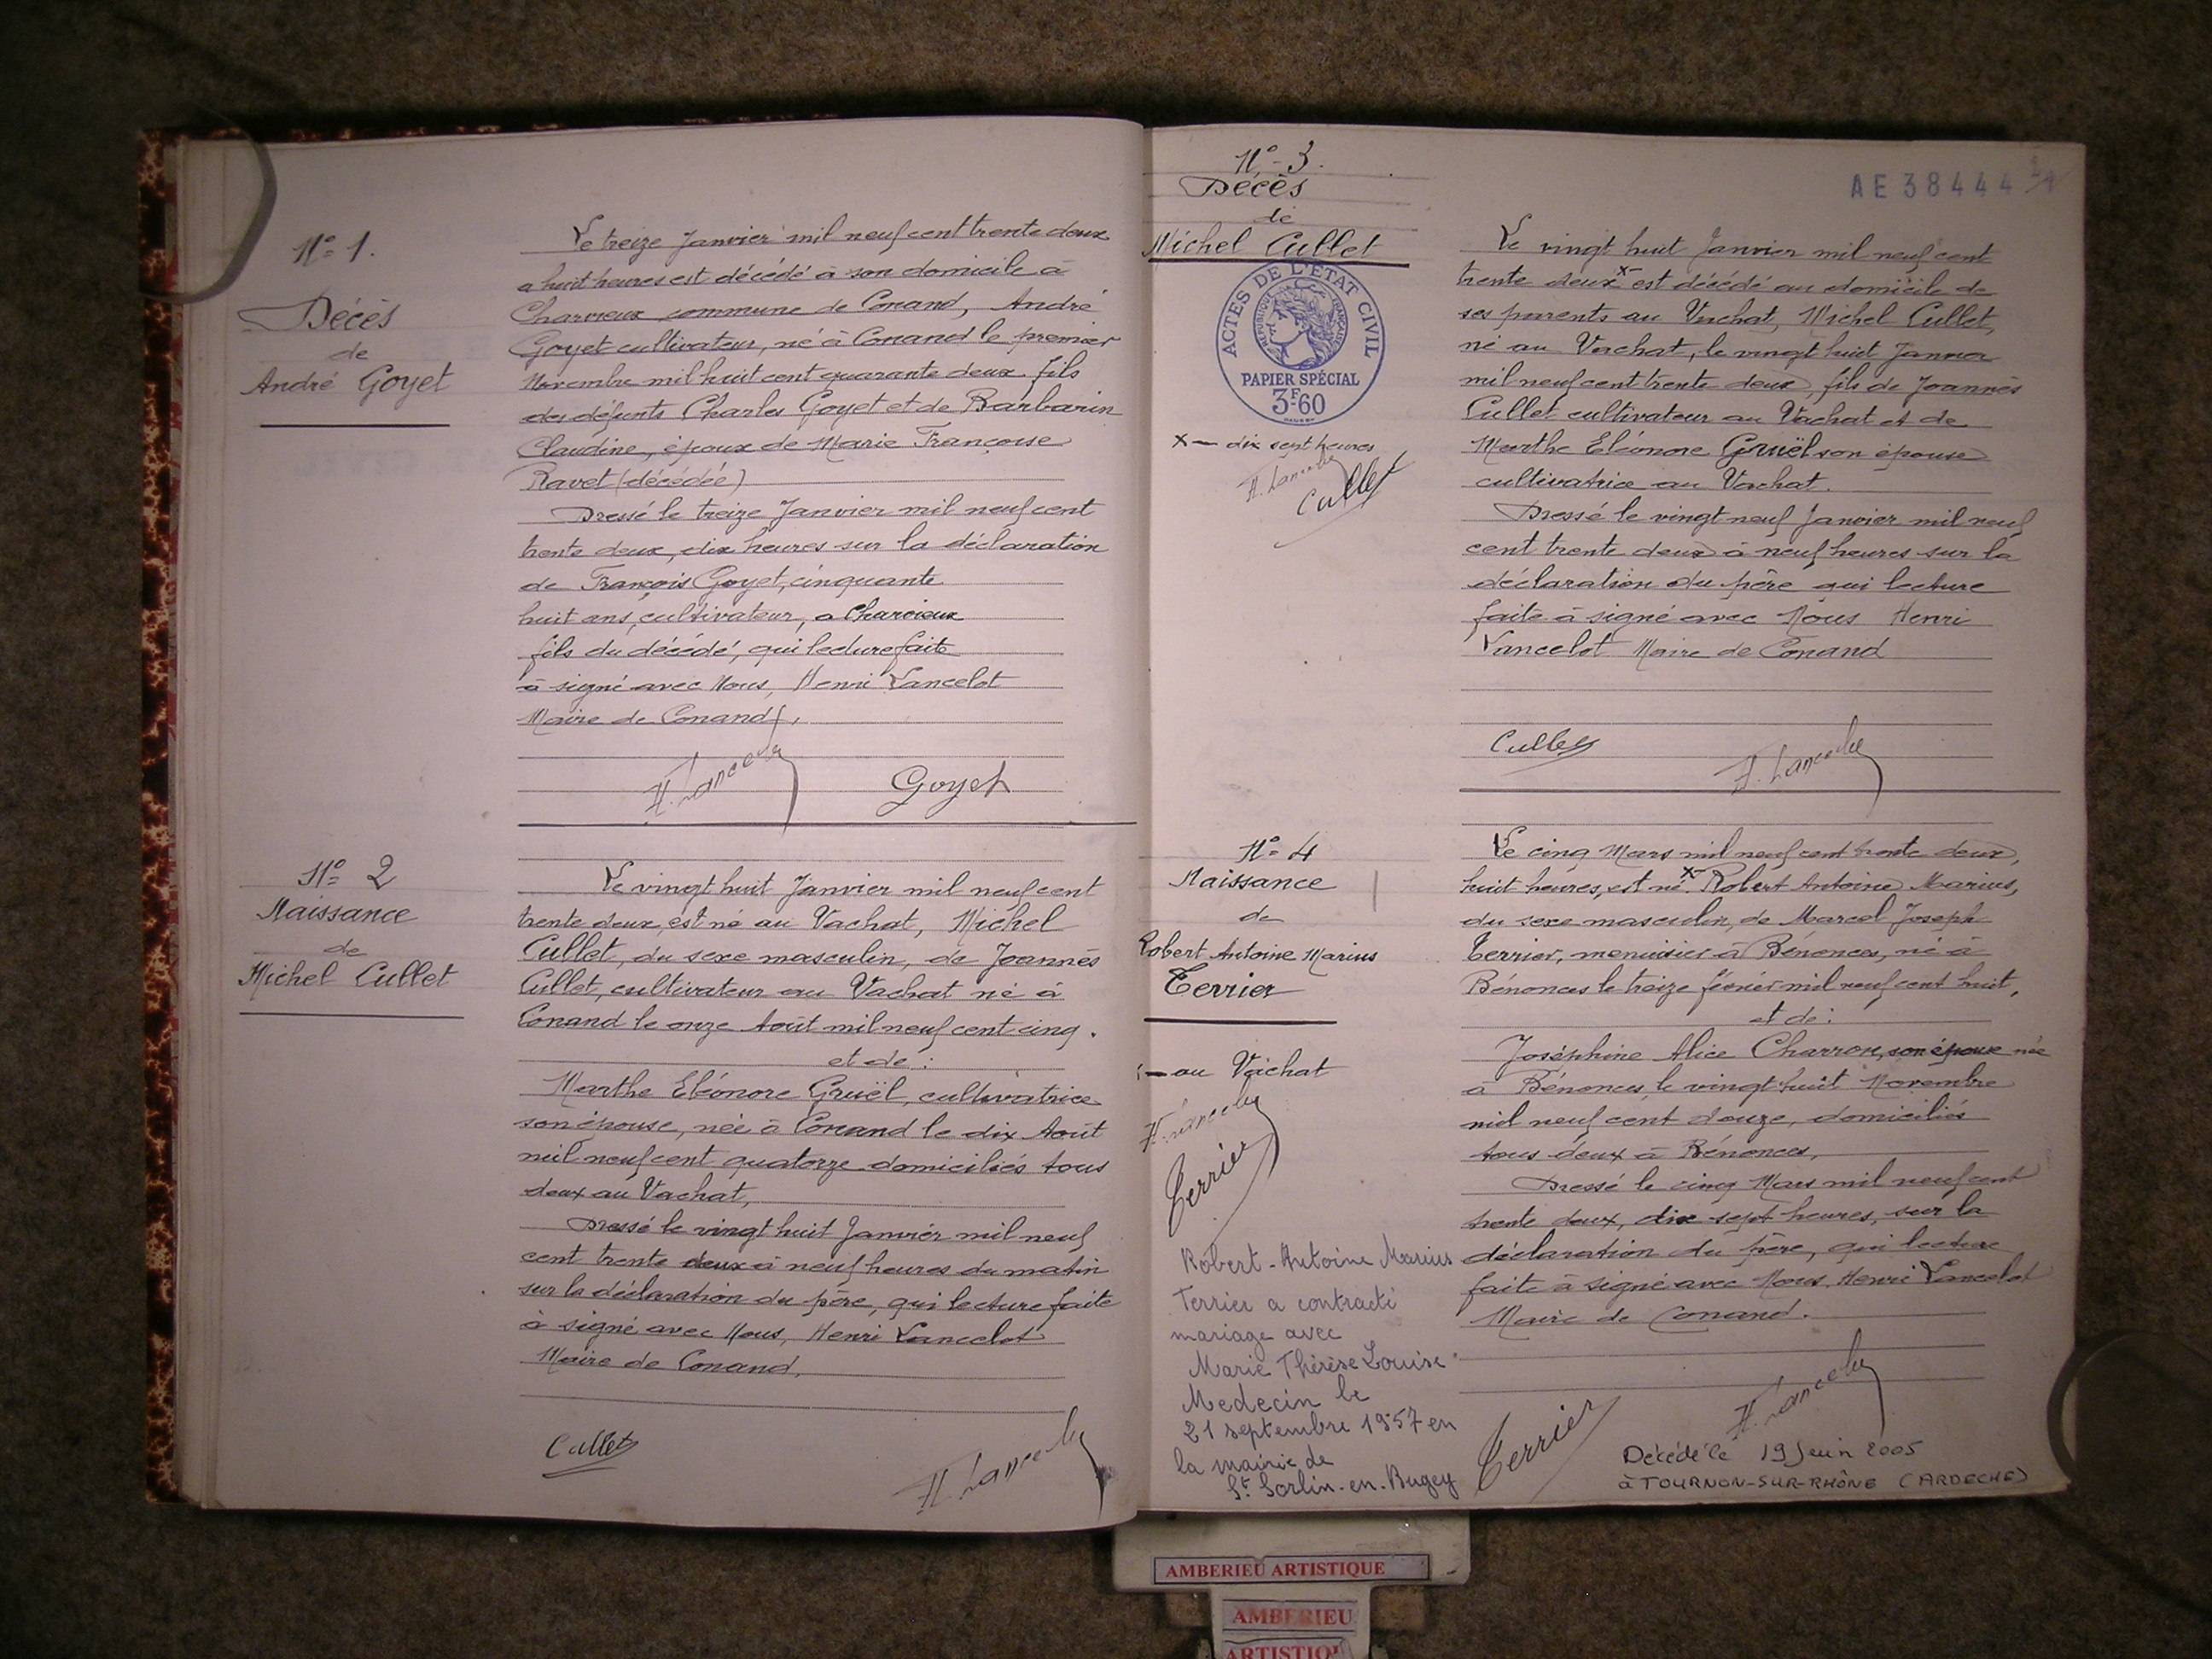 N° 1.
Décès
de
André Goyet
Le treize Janvier mil neuf cent trente deux
a huit heures est décédé à son domicile à
Charvieux commune de Conand, André
Goyet cultivateur, né à Conand le premier
Novembre mil huit cent quarante deux, fils
des défunts Charles Goyet et de Barbarin
Claudine, époux de Marie Françoise
Ravet (décédée)
Dressé le treize Janvier mil neuf cent
trente deux, dix heures sur la déclaration
de François Goyet, cinquante
huit ans, cultivateur, a Charvieux
fils du décédé, qui lecture faite
à signé avec Nous, Henri Lancelot
Maire de Conand,
H. Lancelot
Goyet
N° 2
Naissance
de
Michel Cullet
Le vingt huit Janvier mil neuf cent
trente deux, est né au Vachat, Michel
Cullet, du sexe masculin, de Joannès
Cullet, cultivateur au Vachat né à
Conand le onze Août mil neuf cent cinq.
et de :
Marthe Eléonore Gruël, cultivatrice
son épouse, née à Conand le dix Août
mil neuf cent quatorze domiciliés tous
deux au Vachat,
Dressé le vingt huit Janvier mil neuf
cent trente deux à neuf heures du matin
sur la déclaration du père, qui lecture faite
à signé avec Nous, Henri Lancelot
Maire de Conand,
Cullet
H. Lancelot
N° 3.
Décès
de
Michel Cullet
ACTES DE L'ETAT CIVIL
REPUBLIQUE FRANÇAISE
PAPIER SPÉCIAL
3F60
x — dix sept heures
H. Lancelot
Cullet
AE 38444
Le vingt huit Janvier mil neuf cent
trente deux x– est décédé au domicile de
ses parents au Vachat, Michel Cullet,
né au Vachat, le vingt huit Janvier
mil neuf cent trente deux, fils de Joannes
Cullet cultivateur au Vachat et de
Marthe Eléonore Gruël son épouse
cultivatrice au Vachat.
Dressé le vingt neuf Janvier mil neuf
cent trente deux à neuf heures sur la
déclaration du père qui lecture
faite à signé avec Nous Henri
Lancelot Maire de Conand
Cullet
H. Lancelot
N° 4
Naissance
de
Robert Antoine Marius
Terrier
x — au Vachat
H. Lancelot
Terrier
Robert-Antoine Marius
Terrier a contracté
mariage avec
Marie Thérèse Louise
Medecin le
21 septembre 1957 en
la mairie de
St Sorlin-en-Bugey
Le cinq Mars mil neuf cent trente deux,
huit heures, est né x– Robert Antoine Marius,
du sexe masculin, de Marcel Joseph
Terrier, menuisier à Bénonces, né à
Bénonces le treize février mil neuf cent huit,
et de :
Joséphine Alice Charron, son épouse née
à Bénonces, le vingt huit Novembre
mil neuf cent douze, domiciliés
tous deux à Bénonces,
Dressé le cinq Mars mil neuf cent
trente deux, dix-sept heures, sur la
déclaration du père, qui lecture
faite à signé avec Nous Henri Lancelot
Maire de Conand.
Terrier
H. Lancelot
Décédé le 19 Juin 2005
à TOURNON-SUR-RHÔNE (ARDECHE)
AMBERIEU ARTISTIQUE
AMBERIEU
ARTISTIQU